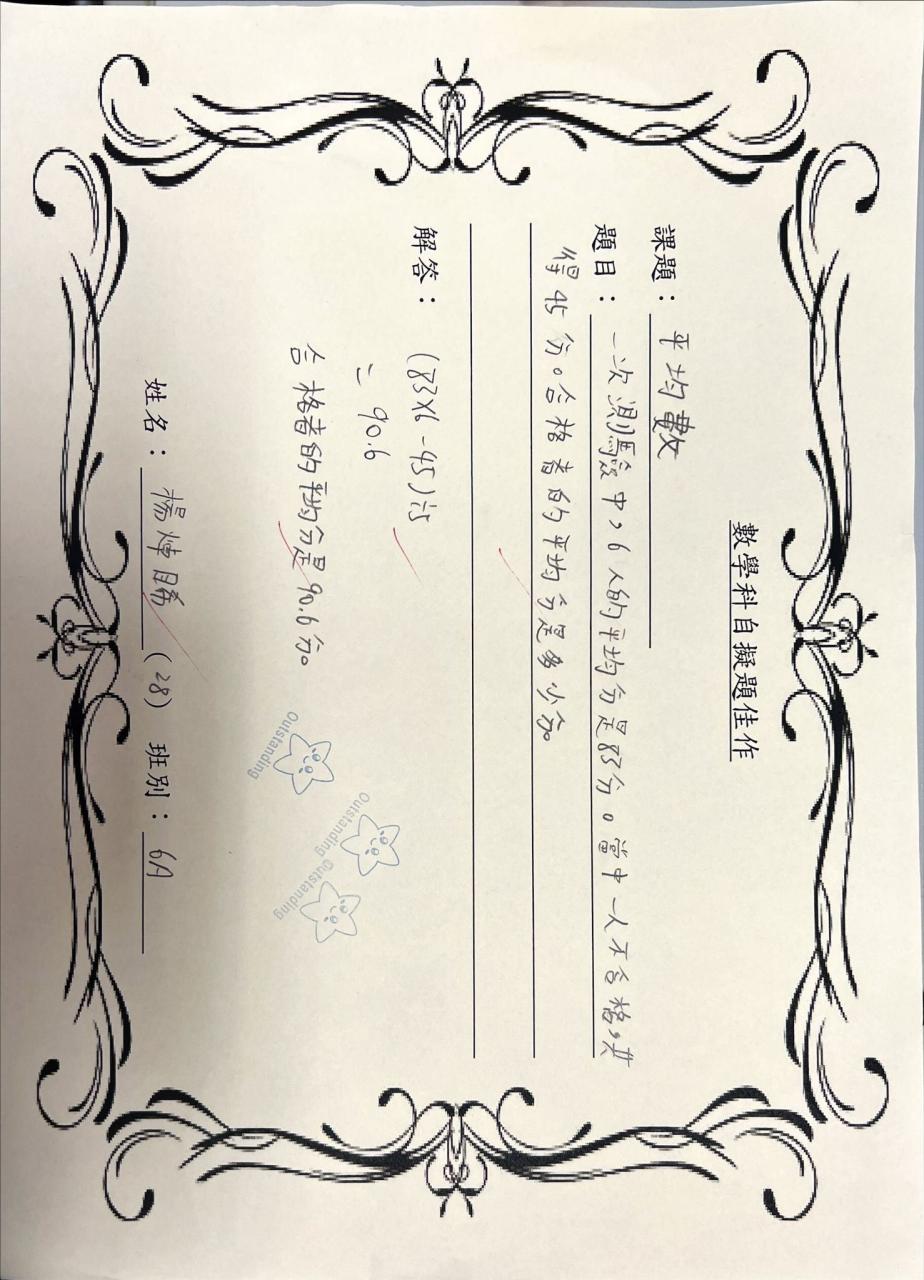 數學科自擬題佳作
課題：平均數
題目：一次測驗中，6人的平均分是83分。當中一人不合格，共
得45分。合格者的平均分是多少分。
解答：(83×6-45)÷5
= 90.6
合格者的平均分是90.6分。
Outstanding
Outstanding
Outstanding
姓名：楊焯晞 (28) 班別：6A